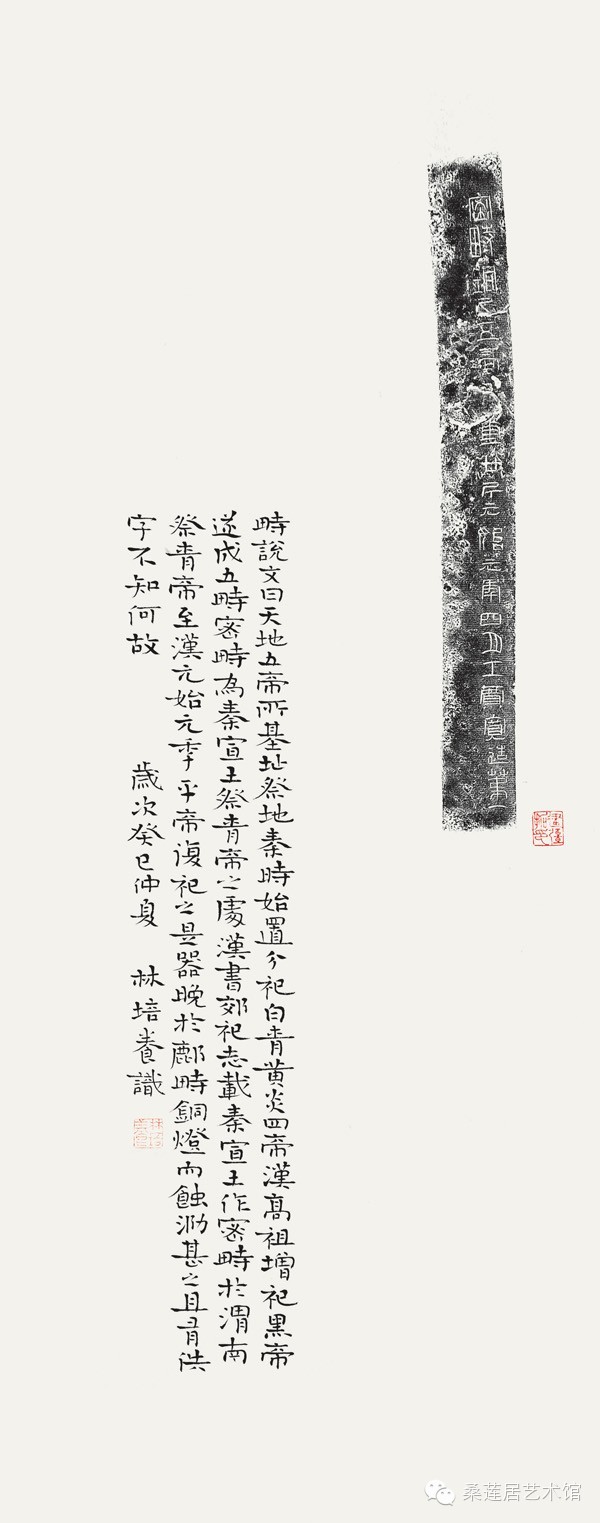 密畤銅
重
元年四月工賈寶造第一
畤說文曰天地五帝所基址祭地秦畤始置分祀白青黄炎四帝漢高祖增祀黑帝
遂成五畤密畤為秦宣王祭青帝之處漢書郊祀志載秦宣王作密畤於渭南
祭青帝至漢元始元季平帝復祀之是器晚於鄜畤銅燈而蝕泐甚之且有佚
字不知何故
歲次癸巳仲夏 林培養識
桑莲居艺术馆